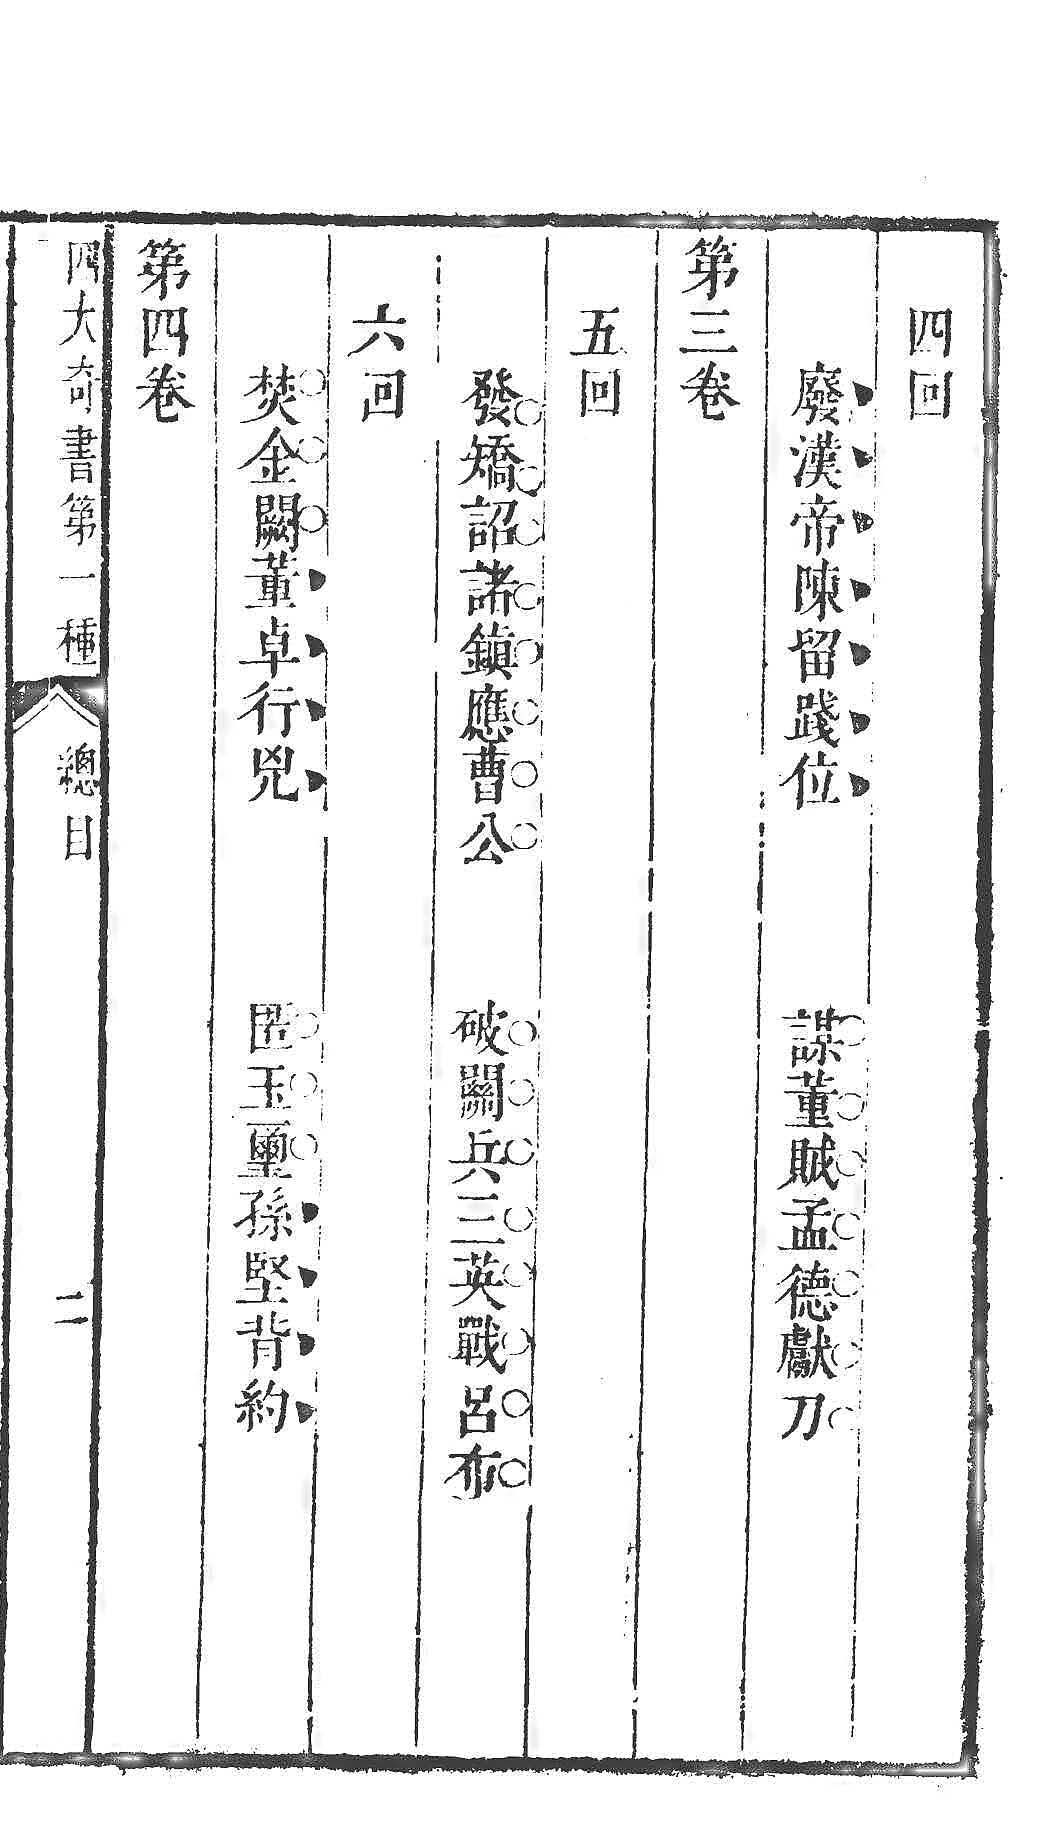 四回
廢漢帝陳留踐位　謀董賊孟德獻刀
第三卷
五回
發矯詔諸鎮應曹公　破關兵三英戰呂布
六回
焚金闕董卓行兇　匿玉璽孫堅背約
第四卷
四大奇書第一種　總目　二